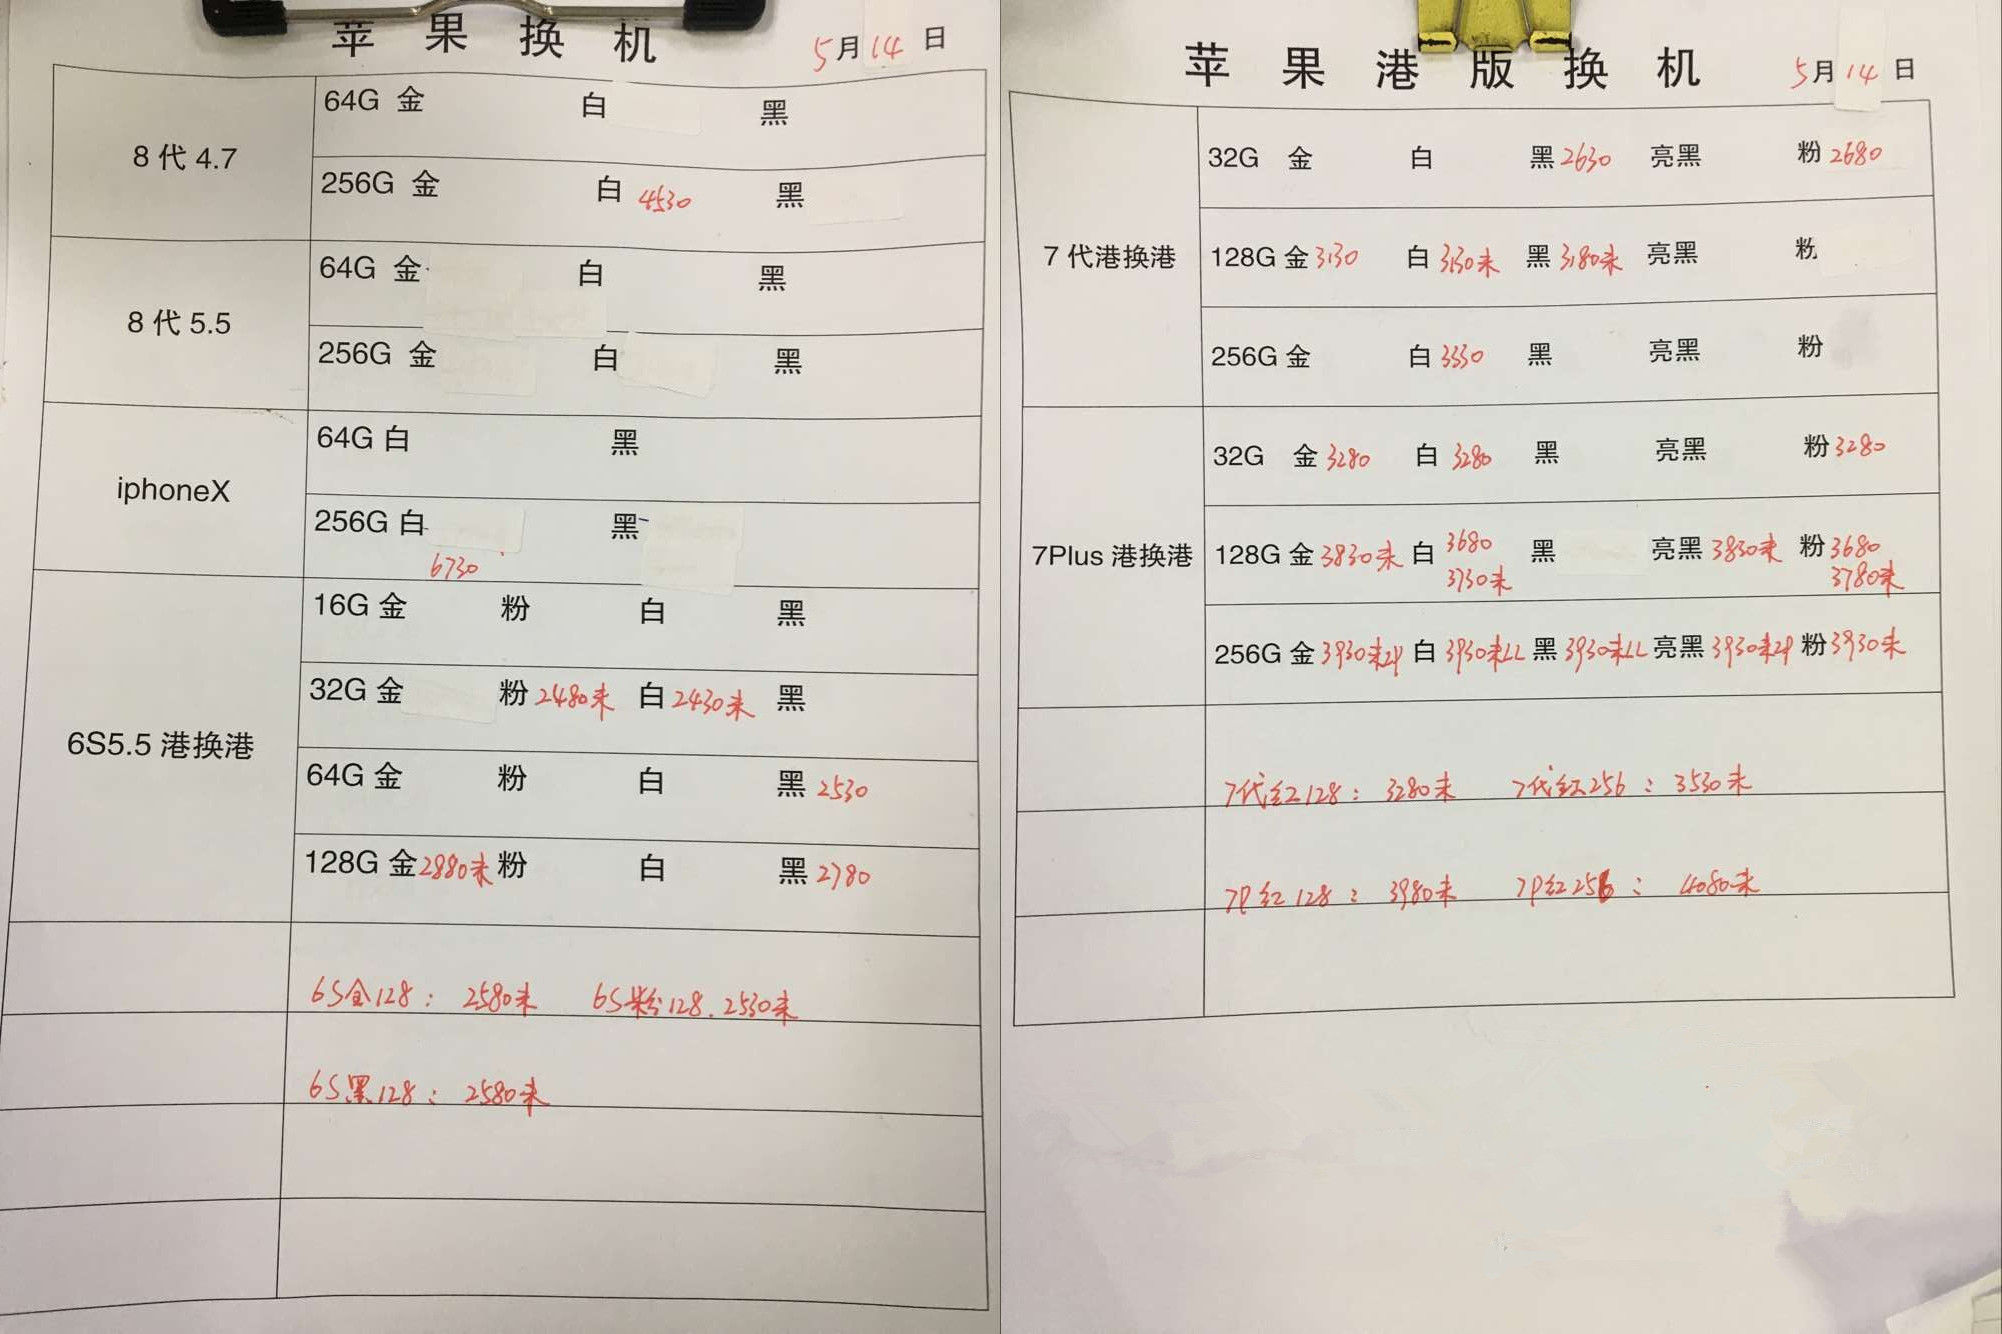 苹果换机 5月14日
8代4.7
64G 金 白 黑
256G 金 白 4530 黑
8代5.5
64G 金 白 黑
256G 金 白 黑
iphoneX
64G 白 黑
256G 白 黑
6730
6S5.5 港换港
16G 金 粉 白 黑
32G 金 粉 2480未 白 2430未 黑
64G 金 粉 白 黑 2530
128G 金 2880未 粉 白 黑 2780
6S金128: 2580未 6S粉128. 2530未
6S黑128: 2580未
苹果港版换机 5月14日
7代港换港
32G 金 白 黑 2630 亮黑 粉 2680
128G 金 3130 白 3130未 黑 3180未 亮黑 粉
256G 金 白 3330 黑 亮黑 粉
7Plus 港换港
32G 金 3280 白 3280 黑 亮黑 粉 3280
128G 金 3830未 白 3680 黑 亮黑 3830未 粉 3680
3730未 3780未
256G 金 3930未ZP 白 3930未LL 黑 3930未LL 亮黑 3930未ZP 粉 3930未
7代红128: 3280未 7代红256: 3530未
7P红128: 3980未 7P红256: 4080未